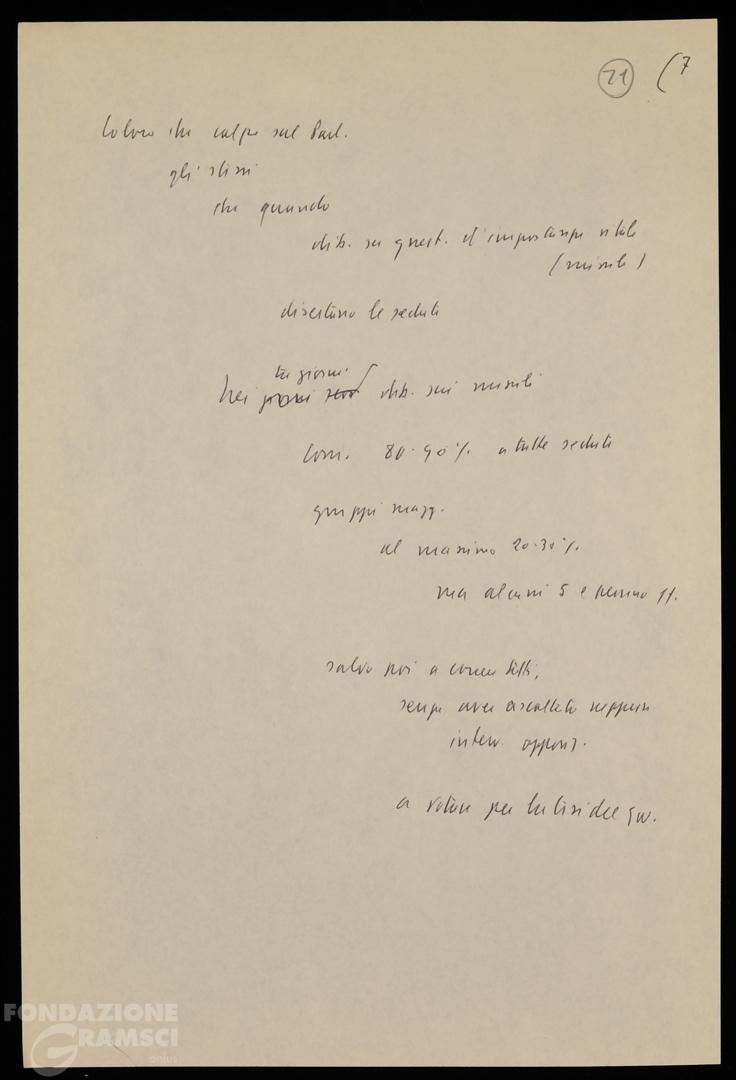 21 (7
Coloro che colpo sul Parl.
gli stessi
che quando
dib. su quest. d'importanza vitale
(missili)
disertano le sedute
tre giorni
Nei giorni dib. sui missili
Com. 80-90% a tutte sedute
gruppi magg.
al massimo 20-30%.
ma alcuni 5 e persino
salvo poi a correre tutti,
senza aver ascoltato neppure
interv. oppos.
a votare per la tesi del gov.
FONDAZIONE
GRAMSCI
onlus